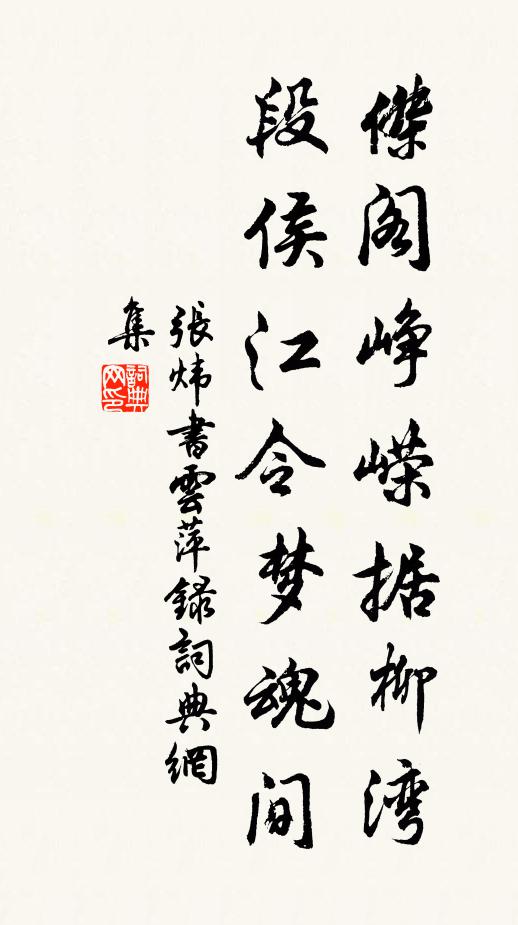 傑阁峥嵘据柳湾
段侯江令梦魂间
張炜書雲萍錄詞典網
集
詞典
网印